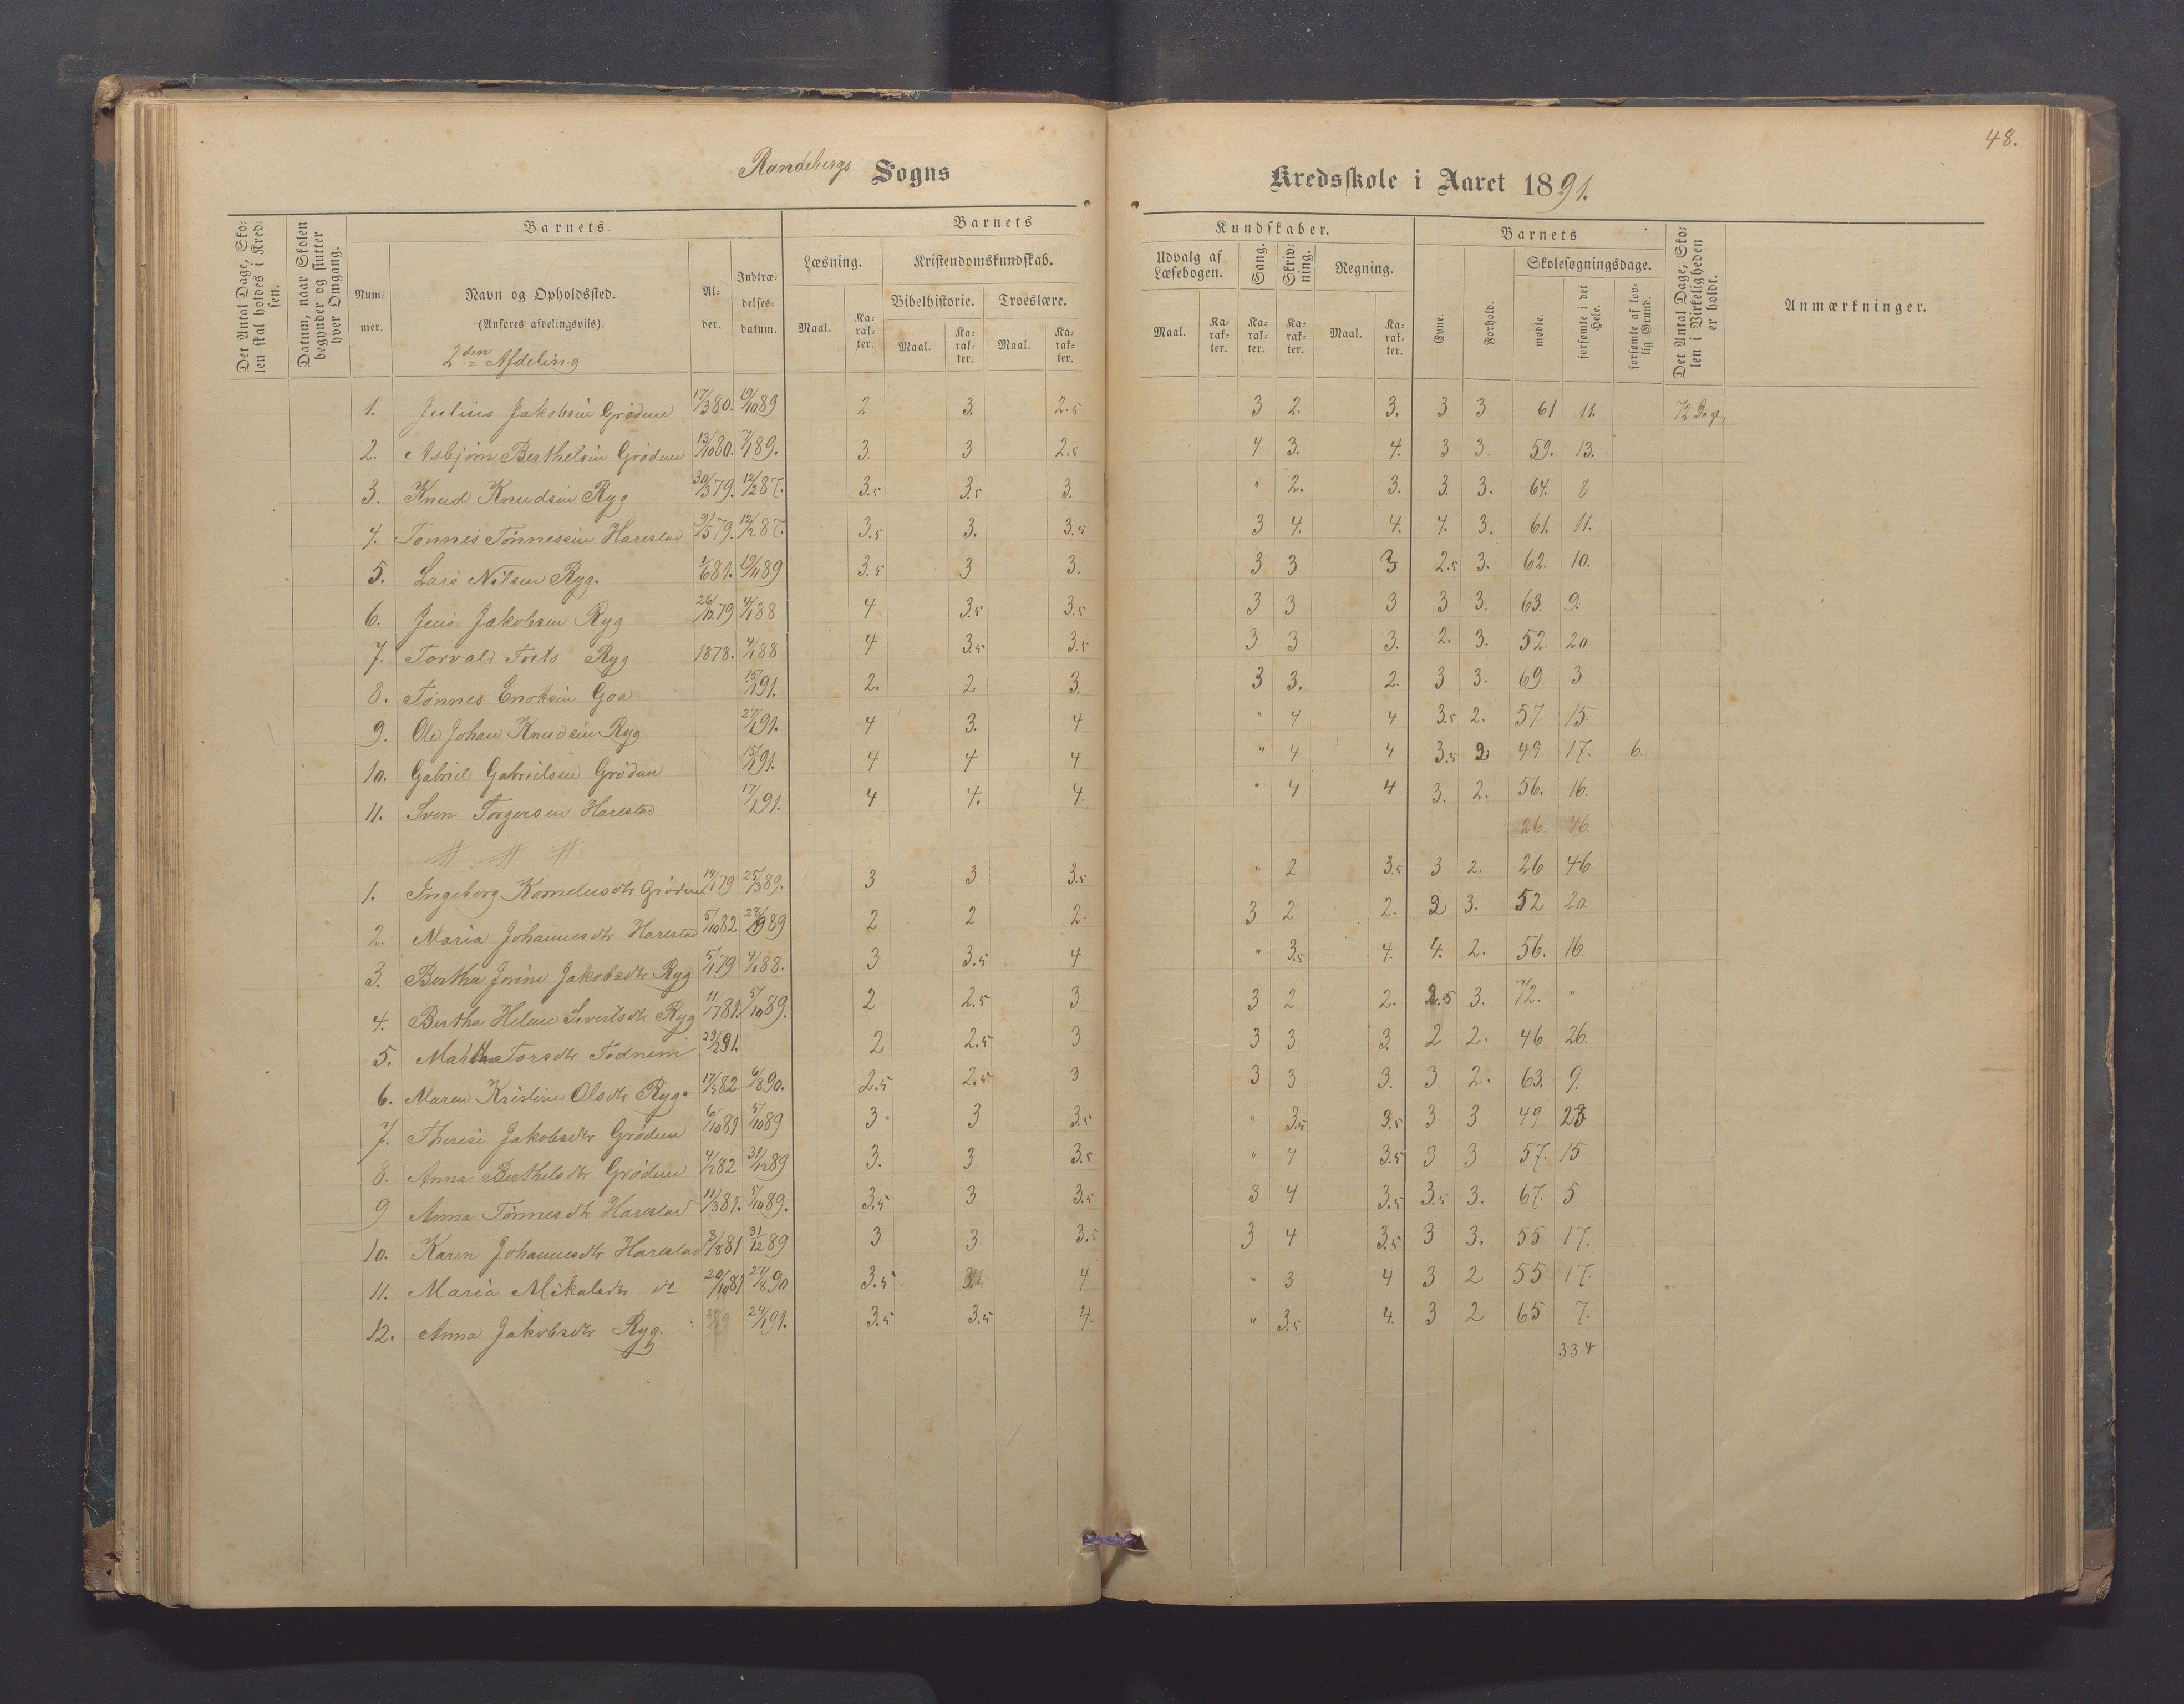 48.
Randebergs Sogns Kredsskole i Aaret 1891.
Det Antal Dage, Skolen skal holdes i Kredsen.
Datum, naar Skolen begynder og slutter hver Omgang.
Barnets
Barnets
Kundskaber.
Barnets
Det Antal Dage, Skolen i Virkeligheden er holdt.
Anmærkninger.
Nummer.
Navn og Opholdssted.
(Anføres afdelingsvis).
2den Afdeling
Alder.
Indtrædelsesdatum.
Læsning.
Kristendomskundskab.
Bibelhistorie.
Troeslære.
Udvalg af Læsebogen.
Sang.
Skrivning.
Regning.
Evne.
Forhold.
Skolesøgningsdage.
Maal.
Karakter.
Maal.
Karakter.
Maal.
Karakter.
Maal.
Karakter.
Karakter.
Karakter.
Maal.
Karakter.
mødte.
forsømte i det Hele.
forsømte af lovlig Grund.
1. Julius Jakobsen Grødem 17/3 80. 19/10 89 2 3. 2.5 3 2. 3. 3 3 61 11. 72 Dage
2. Asbjørn Berthelsen Grødem 13/10 80. 7/1 89. 3. 3 2.5 4 3. 4. 3 3. 59. 13.
3. Knud Knudsen Ryg 30/3 79. 12/12 87. 3.5 3.5 3. " 2. 3. 3. 3. 64. 8
4. Tønnes Tønnessen Harestad 9/5 79. 12/12 87. 3.5 3. 3.5 3 4. 4. 4. 3. 61. 11.
5. Lars Nilsen Ryg. 1/6 81. 19/11 89 3.5 3 3. 3 3 3 2.5 3. 62. 10.
6. Jens Jakobsen Ryg 26/12 79 4/1 88 4 3.5 3.5 3 3 3 3 3. 63. 9.
7. Torvald Ryg 1878. 4/1 88 4 3.5 3.5 3 3 3. 2. 3. 52. 20
8. Tønnes Enoksen Goa 15/1 91. 2. 2 3. 3 3. 2. 3 3. 69. 3
9. Ole Johan Knudsen Ryg 27/1 91. 4 3. 4 " 4 4 3.5 2. 57 15
10. Gabriel Gabrielsen Grødem 15/1 91. 4 4 4 " 4 4 3.5 2 49 17. 6.
11. Sven Torgersen Harestad 17/1 91. 4 4. 4. " 4 4 3. 2. 56. 16.
26. 46.
1. Ingeborg Kornelusdtr Grødem 14/1 79 25/3 89. 3 3 3.5 " 2 3.5 3 2. 26 46
2. Maria Johannesdtr Harestad 5/10 82 89 2 2 2. 3 2 2. 2 3. 52 20.
3. Bertha Jorine Jakobsdtr Ryg 5/1 79 4/1 88. 3 3.5 4 " 3.5 4. 4. 2. 56. 16.
4. Bertha Helene Sivertsdtr Ryg 11/7 81. 5/10 89. 2 2.5 3 3 2 2. 2.5 3. 72. "
5. Martha Torsdtr Todnem 29/2 91. 2 2.5 3 3 3 3. 2 2. 46 26.
6. Maren Kristine Olsdtr Ryg. 82 6/8 90. 2.5 2.5 3 3 3 3. 3 2. 63. 9.
7. Therese Jakobsdtr Grødem 6/10 81 5/10 89 3 3 3.5 " 3.5 3.5 3 3 49 23.
8. Anna Berthelsdtr Grødem 4/2 82 31/12 89 3. 3 3.5 " 4 3.5 3 3 57. 15
9 Anna Tønnesdtr Harestad 11/3 81. 5/10 89. 3.5 3 3.5 3 4 3.5 3.5 3. 67. 5
10. Karen Johannesdtr Harestad 3/8 81 31/12 89 3 3 3.5 3 4 3.5 3 3. 55 17.
11. Maria Mikalsdtr do 20/10 81 27/8 90 3.5 4 " 3 4 3 2 55 17.
12. Anna Jakobsdtr Ryg. 24/1 91. 3.5 3.5 4. " 3.5 4. 3 2 65 7.
334